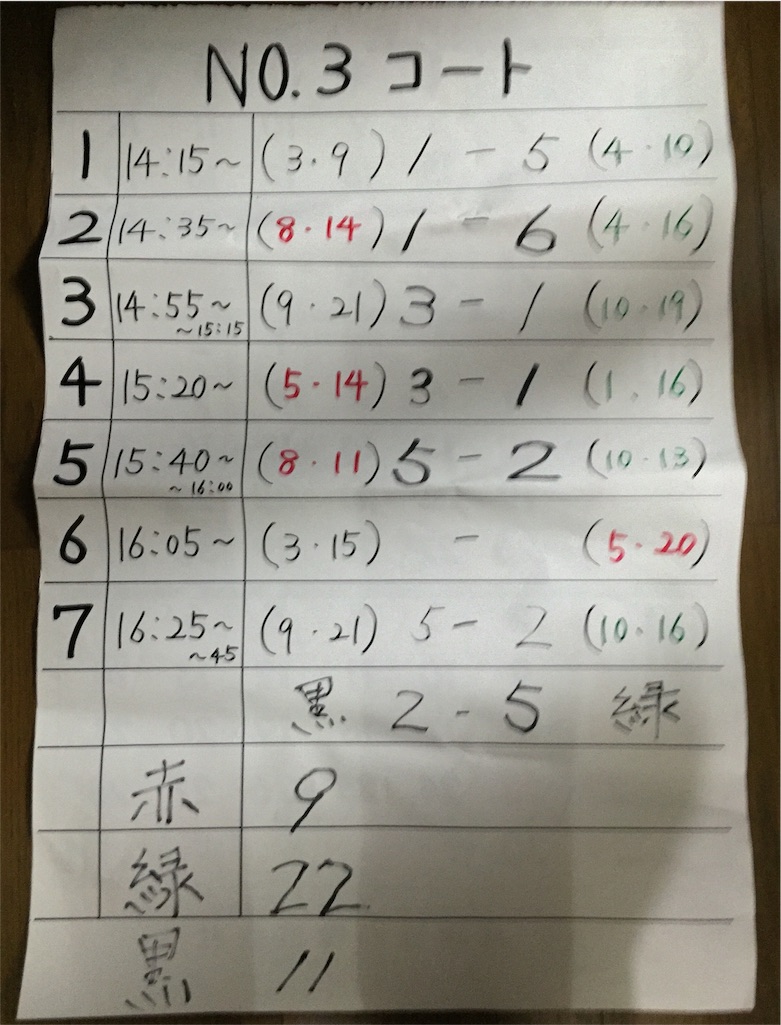 NO.3 コート
1 14:15~ (3・9) 1 - 5 (4・10)
2 14:35~ (8・14) 1 - 6 (4・16)
3 14:55~ ~15:15 (9・21) 3 - 1 (10・19)
4 15:20~ (5・14) 3 - 1 (1.16)
5 15:40~ ~16:00 (8・11) 5 - 2 (10・13)
6 16:05~ (3・15) - (5・20)
7 16:25~ ~45 (9・21) 5 - 2 (10・16)
黒 2 - 5 緑
赤 9
緑 22
黒 11